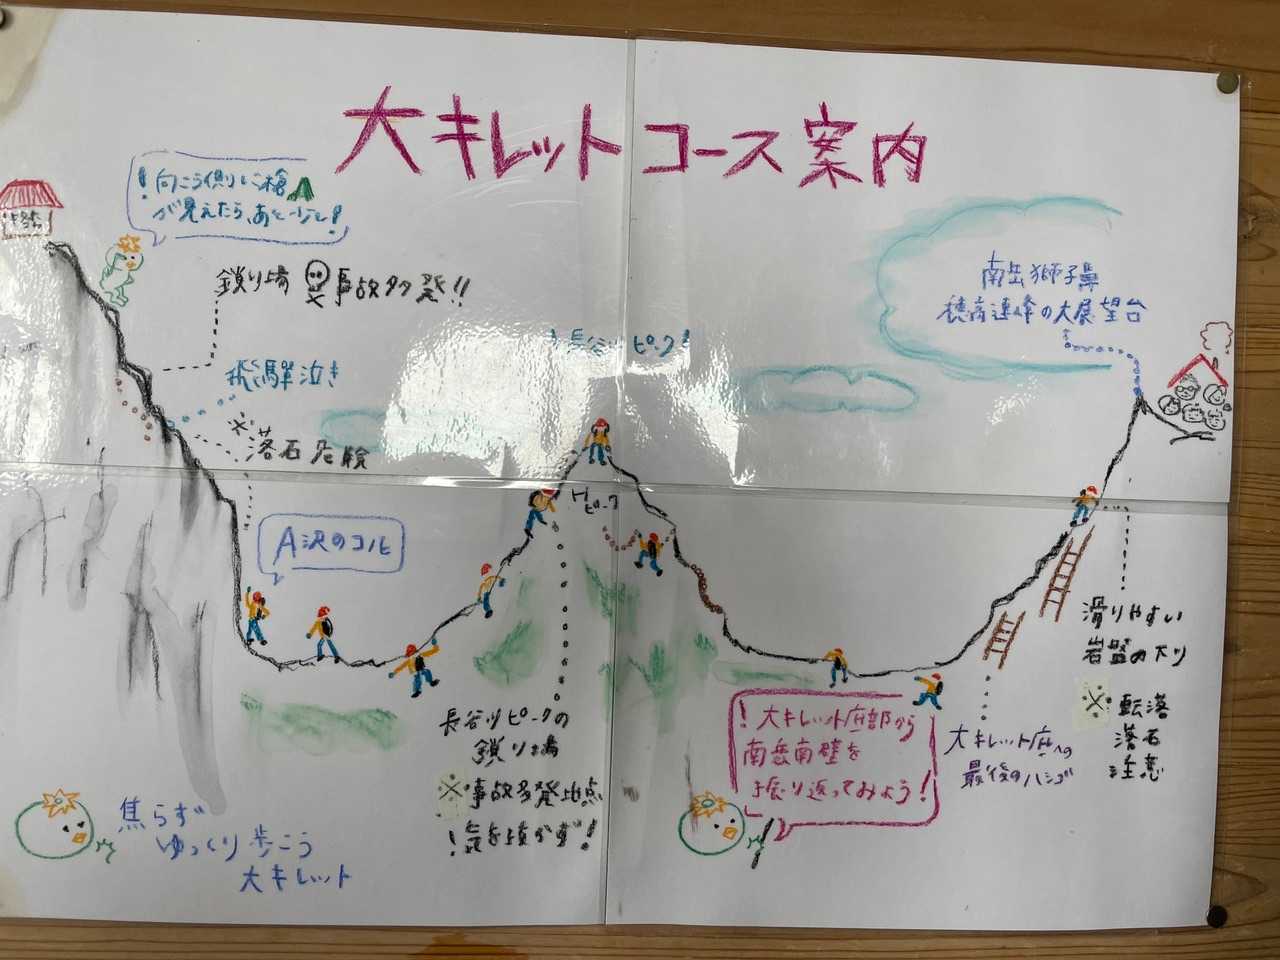 大キレットコース案内
！向こう側に槍
が見えたら、あと少し！
鎖り場 事故多発!!
飛騨泣き
※落石危険
A沢のコル
！長谷川ピーク！
ピーク
南岳獅子鼻
穂高連峰の大展望台
長谷川ピークの
鎖り場
※事故多発地点
！気を抜かず！
！大キレット底部から
南岳南壁を
振り返ってみよう！
大キレット底への
最後のハシゴ
滑りやすい
岩盤の下り
※転落
落石
注意
焦らず
ゆっくり歩こう
大キレット